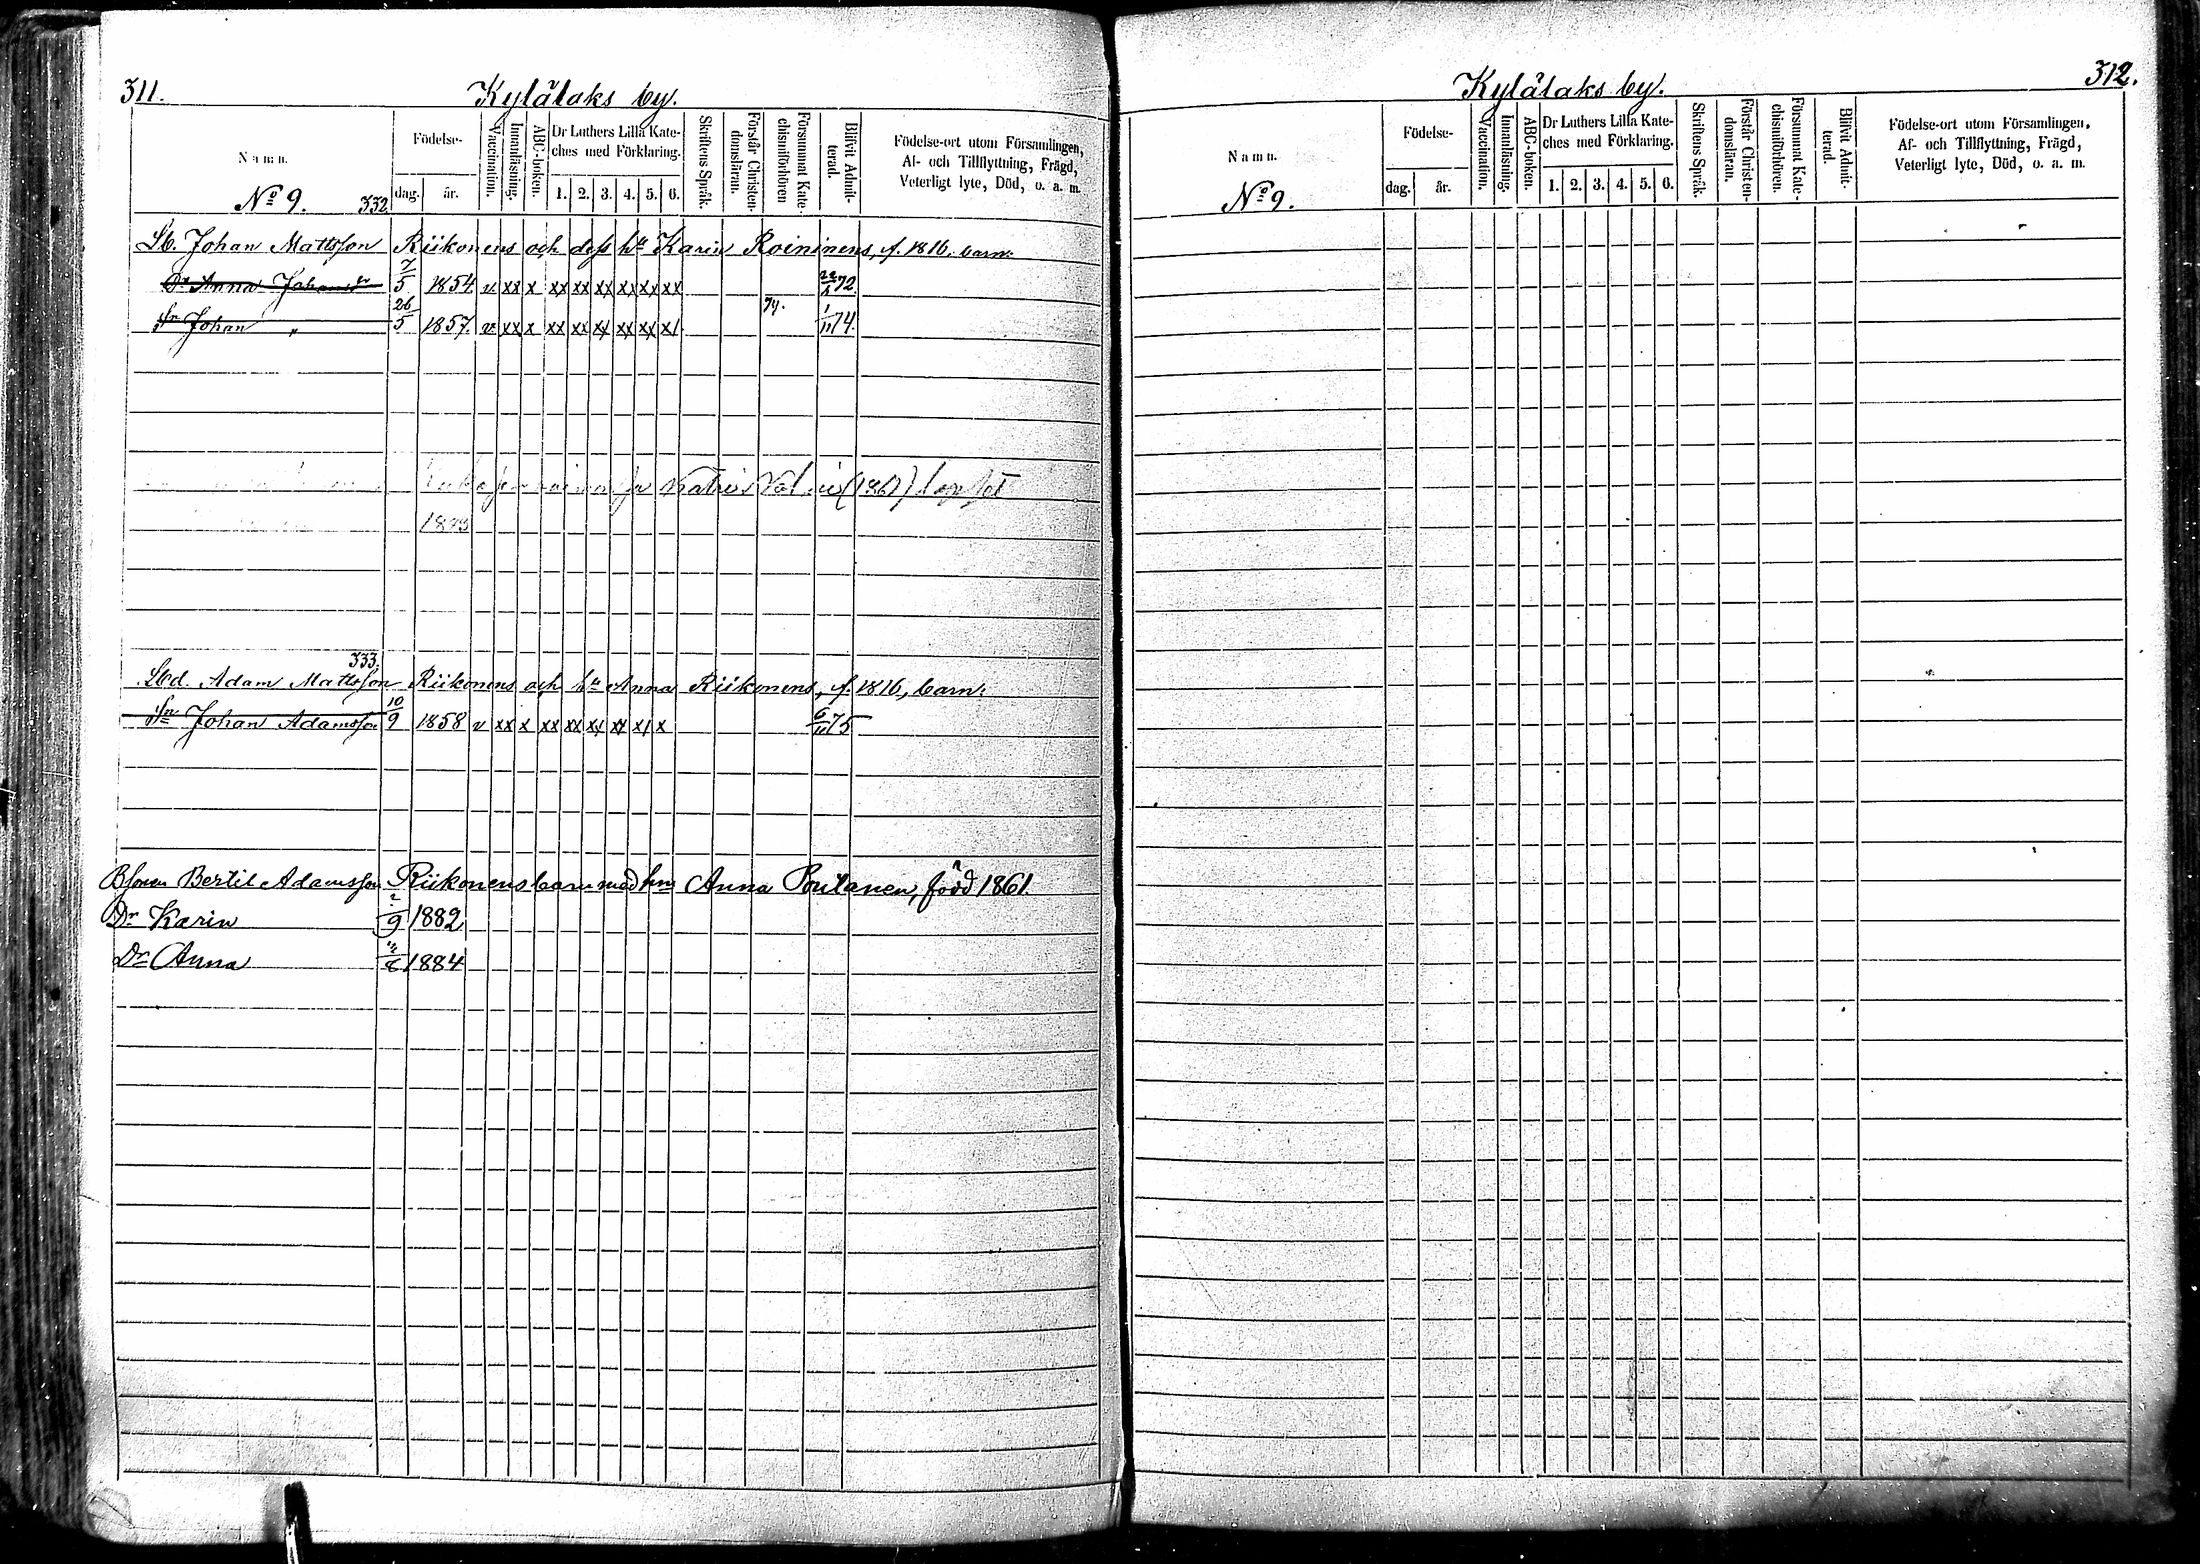 311.
Kylälaks by.
Namn.
Födelse-
dag.
år.
Vaccination.
Innanläsning.
ABC-boken.
Dr Luthers Lilla Kate-
ches med Förklaring.
1. 2. 3. 4. 5. 6.
Skriftens Språk.
Förstår Christen-
domsläran.
Försummat Kate-
chismiförhören
Blifvit Admit-
terad.
Födelse-ort utom Församlingen,
Af- och Tillflyttning, Frägd,
Veterligt lyte, Död, o. a. m.
No 9. 332
Lb. Johan Mattsson Riikonens och dess hu Karin Roininens, f. 1816, barn:
Dr Anna Johansdr 7/5 1854 v xx x xx xx xx xx xx xx 72
Sn Johan " 26/5 1857. v xx x xx xx xx xx xx x/ 74. 1/11 74.
Katri (1861) lapset
1893
333.
Lbd. Adam Mattsson Riikonens och hu Anna Riikonens, f. 1816, barn:
Sn Johan Adamsson 10/9 1858 v xx x xx xx xx xx x/ x 6/11 75
Bonden Bertil Adamsson Riikonens barn med hu Anna Poutanen, född 1861.
Dr Karin /9 1882
Dr Anna 1884
312.
Kylälaks by.
Namn.
Födelse-
dag.
år.
Vaccination.
Innanläsning.
ABC-boken.
Dr Luthers Lilla Kate-
ches med Förklaring.
1. 2. 3. 4. 5. 6.
Skriftens Språk.
Förstår Christen-
domsläran.
Försummat Kate-
chismiförhören.
Blifvit Admit-
terad.
Födelse-ort utom Församlingen,
Af- och Tillflyttning, Frägd,
Veterligt lyte, Död, o. a. m.
No 9.